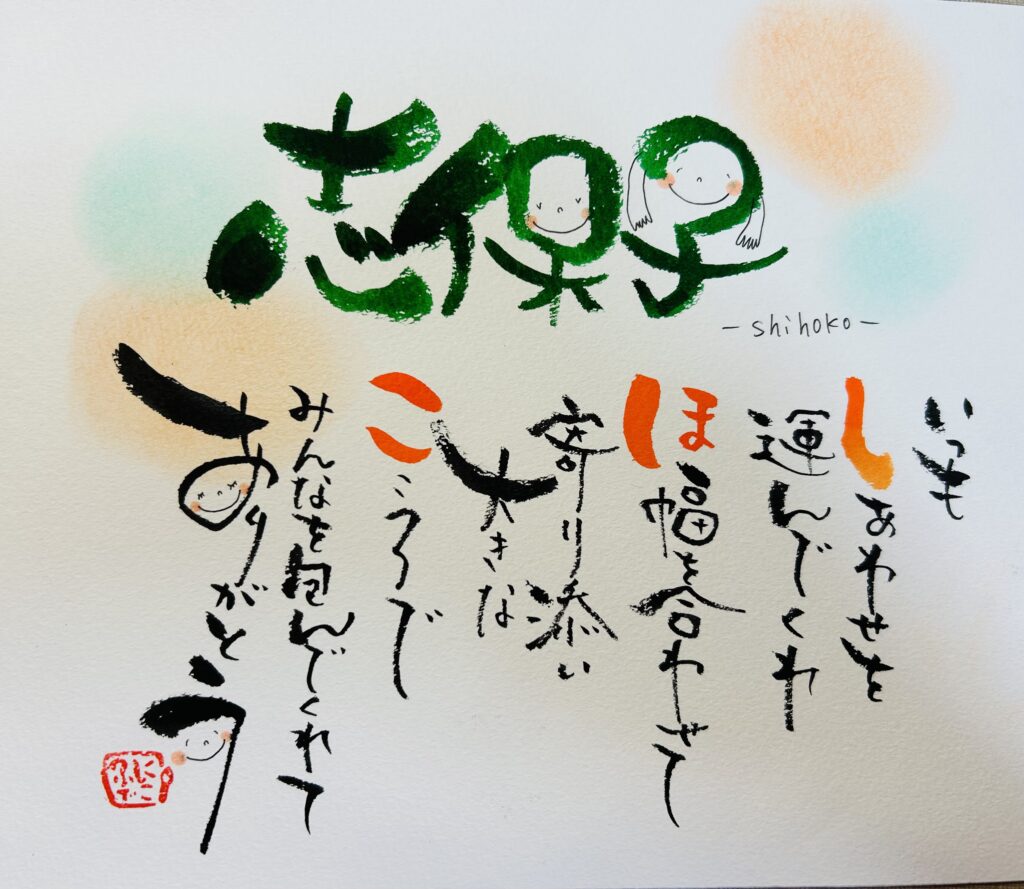 志保子
- shihoko -
いつも
しあわせを
運んでくれ
ほ幅を合わせて
寄り添い
大きな
こころで
みんなを包んでくれて
ありがとう